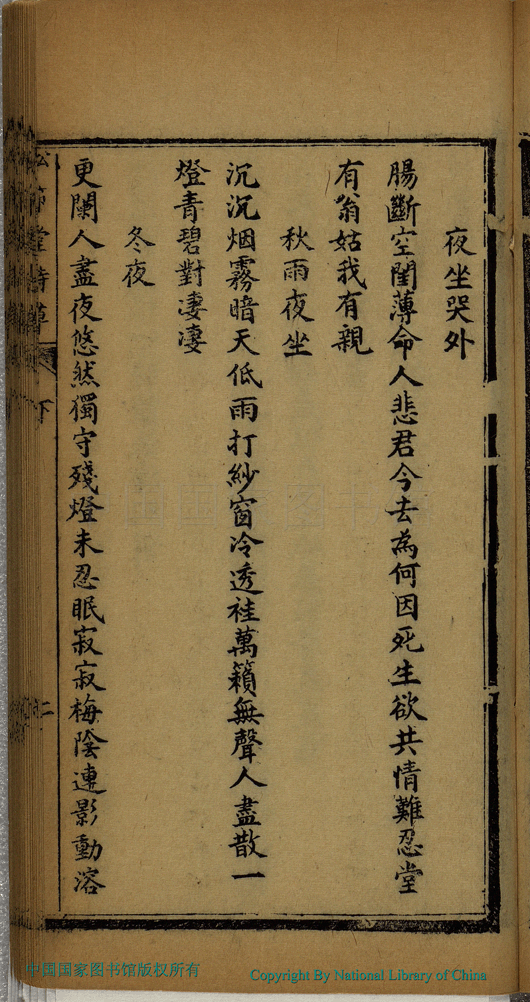 夜坐哭外
腸斷空閨薄命人悲君今去為何因死生欲共情難忍堂
有翁姑我有親
秋雨夜坐
沉沉烟霧暗天低雨打紗窗冷透袿萬籟無聲人盡散一
燈青碧對淒淒
冬夜
更闌人盡夜悠然獨守殘燈未忍眠寂寂梅陰連影動溶
堂詩草 下 二
中国国家图书馆版权所有
Copyright By National Library of China